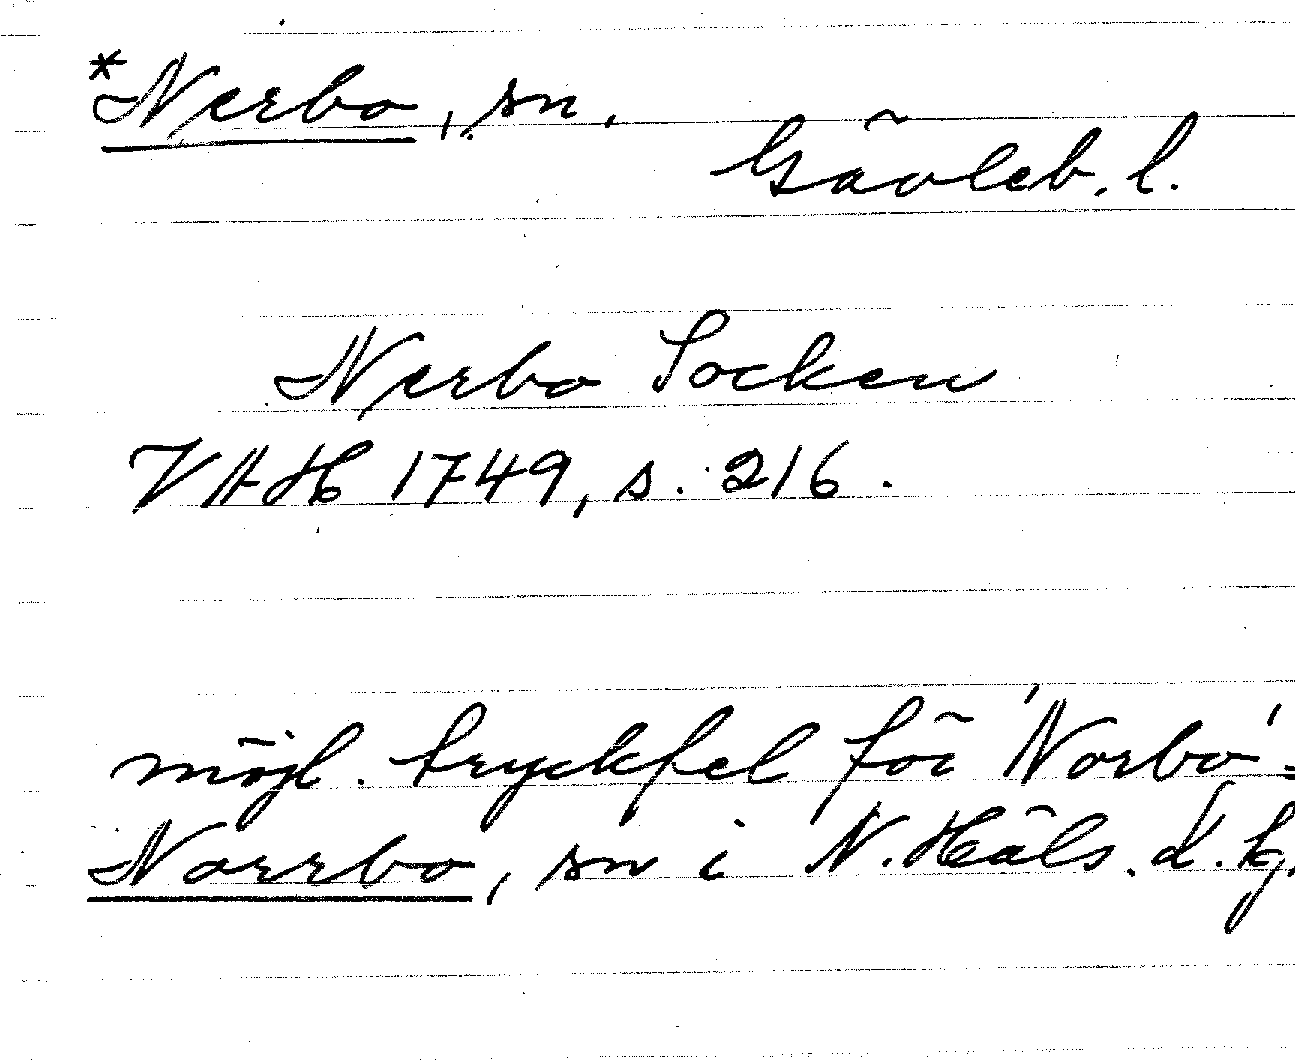 *Nerbo, sn.
Gävleb. l.
Nerbo Socken
VAH 1749, s. 216.
möjl. tryckfel för 'Norbo' =
Norrbo, sn i N. Häls. d. kg.